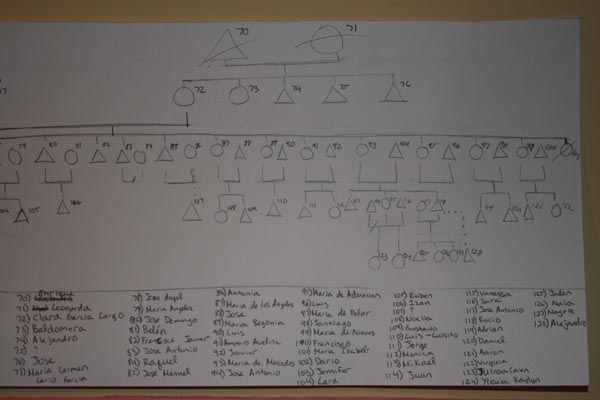 70 71
72 73 74 75 76
79 80 81 82 83 84 85 86 87 88 89 90 91 92 93 94 95 96 97 98 99 100
105 106 107 108 109 110 111
70) Enrique
71) Leonarda
72) Clara Garcia Largo
73) Baldomera
74) Alejandro
75) ?
76) Jose
77) Maria Carmen
Lario Garcia
78) Jose Angel
79) Maria Angeles
80) Jose Domingo
81) Belén
82) Francisco Javier
83) Jose Antonio
84) Raquel
85) Jose Manuel
86) Antonia
87) Maria de los Angeles
88) Jose
89) Maria Begonia
90) Luis
91) Amparo
92) Javier
93) Maria de Mercedes
94) Jose Antonio
95) Maria de Adoracion
96) Luis
97) Maria de Pilar
98) Santiago
99) Maria de Nieves
100) Francisco
101) Maria Isabel
102) Dario
103) Jennifer
104) Lara
105) Ruben
106) Izan
107) ?
108) Noelia
109) Gustavo
110) Luis - Luisito
111) Jorge
112) Monica
113) Mikael
114) Juan
115) Vanessa
116) Sarai
117) Jose Antonio
118) Rocio
119) Adrian
120) Daniel
121) Aaron
122) Virginia
124) Yleuia
125) Julen
126) Naia
128) Alejandro